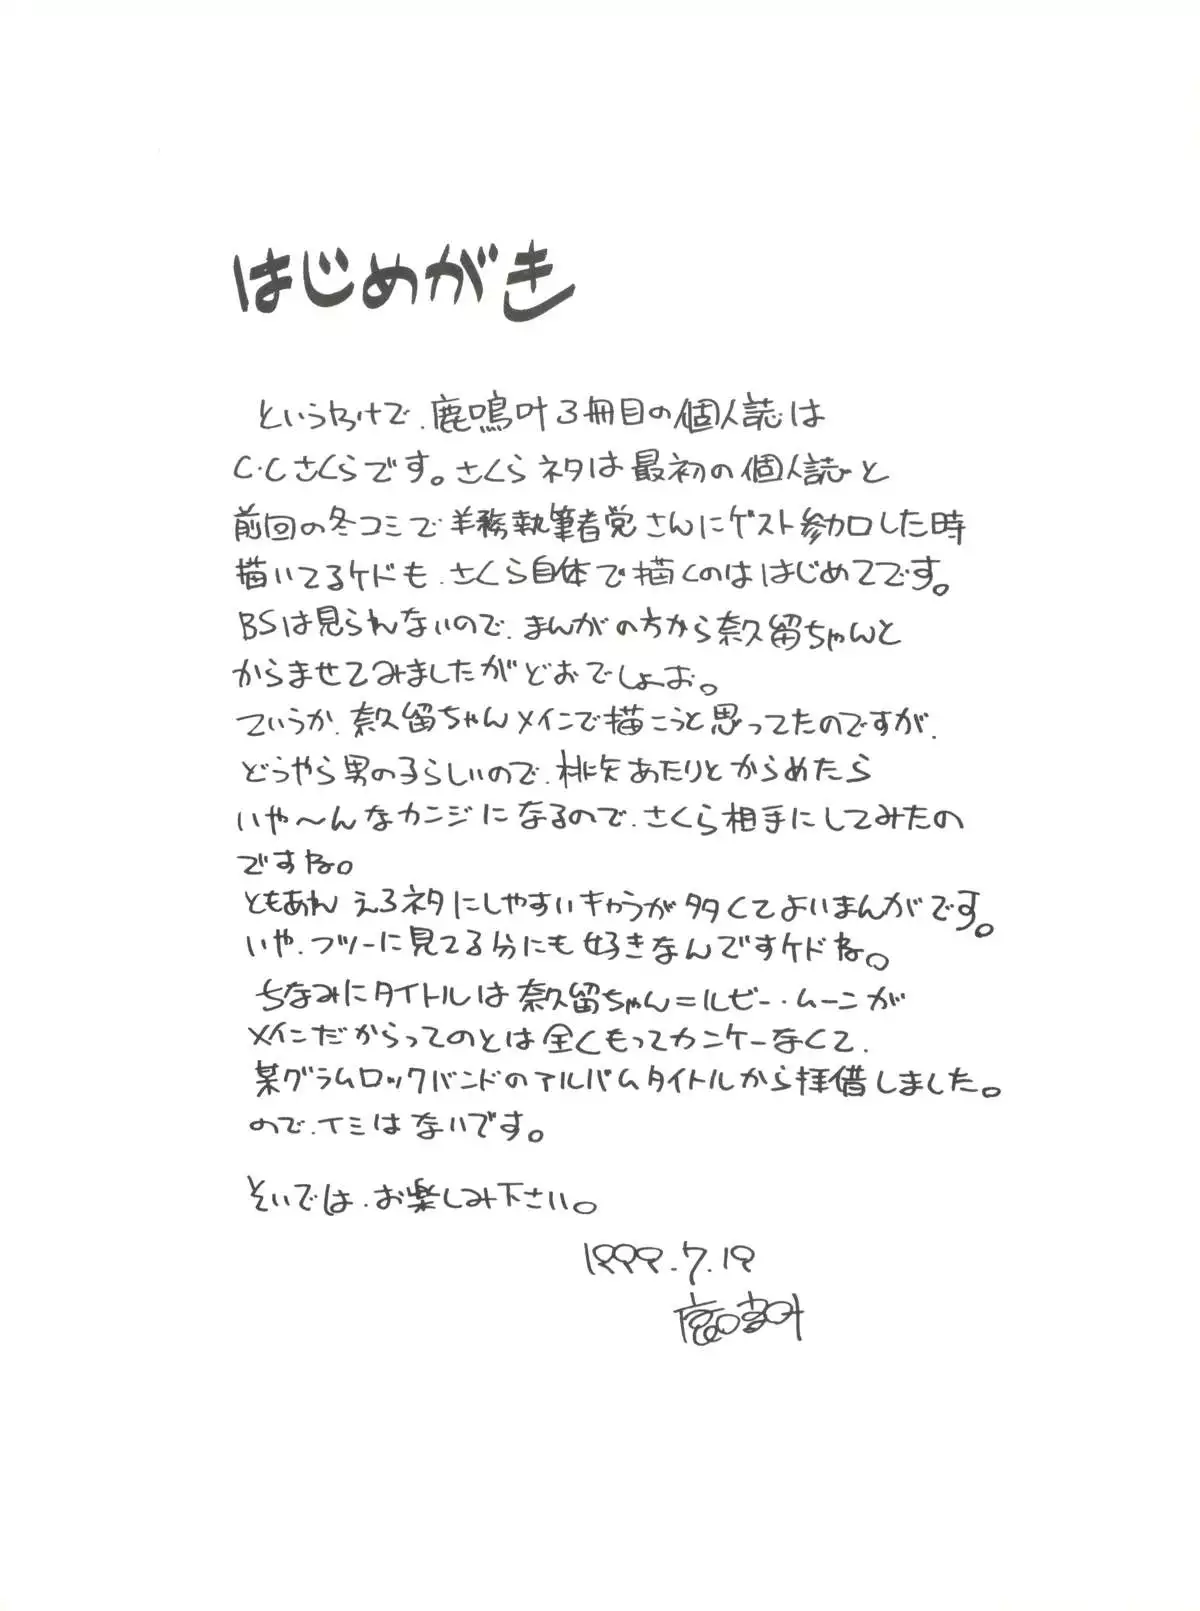 はじめがき
というわけで、鹿鳴叶3冊目の個人誌は
C.Cさくらです。さくらネタは最初の個人誌と
前回の冬コミで半務執筆者党さんにゲスト参加した時
描いてるケドも、さくら自体で描くのははじめてです。
BSは見られないので、まんがの方から奈久留ちゃんと
からませてみましたがどおでしょお。
ていうか、奈久留ちゃんメインで描こうと思ってたのですが、
どうやら男の子らしいので、桃矢あたりとからめたら
いや〜んなカンジになるので、さくら相手にしてみたの
ですね。
ともあれ えろネタにしやすいキャラが多くてよいまんがです。
いや、フツーに見てる分にも好きなんですケドね。
ちなみにタイトルは奈久留ちゃん=ルビー・ムーンが
メインだからってのとは全くもってカンケーなくて、
某グラムロックバンドのアルバムタイトルから拝借しました。
ので、イミはないです。
そいでは、お楽しみ下さい。
1999.7.19
鹿鳴叶